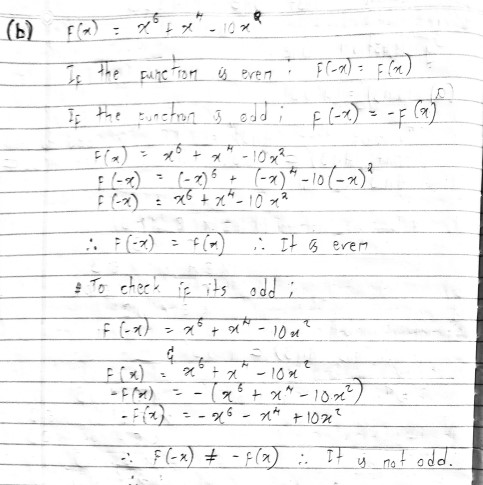 (b) F(x) = x⁶ + x⁴ - 10x²
If the function is even : F(-x) = F(x)
If the function is odd ; F(-x) = -F(x)
F(x) = x⁶ + x⁴ - 10x²
F(-x) = (-x)⁶ + (-x)⁴ - 10(-x)²
F(-x) = x⁶ + x⁴ - 10x²
∴ F(-x) = F(x) ∴ It is even
To check if its odd ;
F(-x) = x⁶ + x⁴ - 10x²
F(x) = x⁶ + x⁴ - 10x²
-F(x) = -(x⁶ + x⁴ - 10x²)
-F(x) = -x⁶ - x⁴ + 10x²
∴ F(-x) ≠ -F(x) ∴ It is not odd.